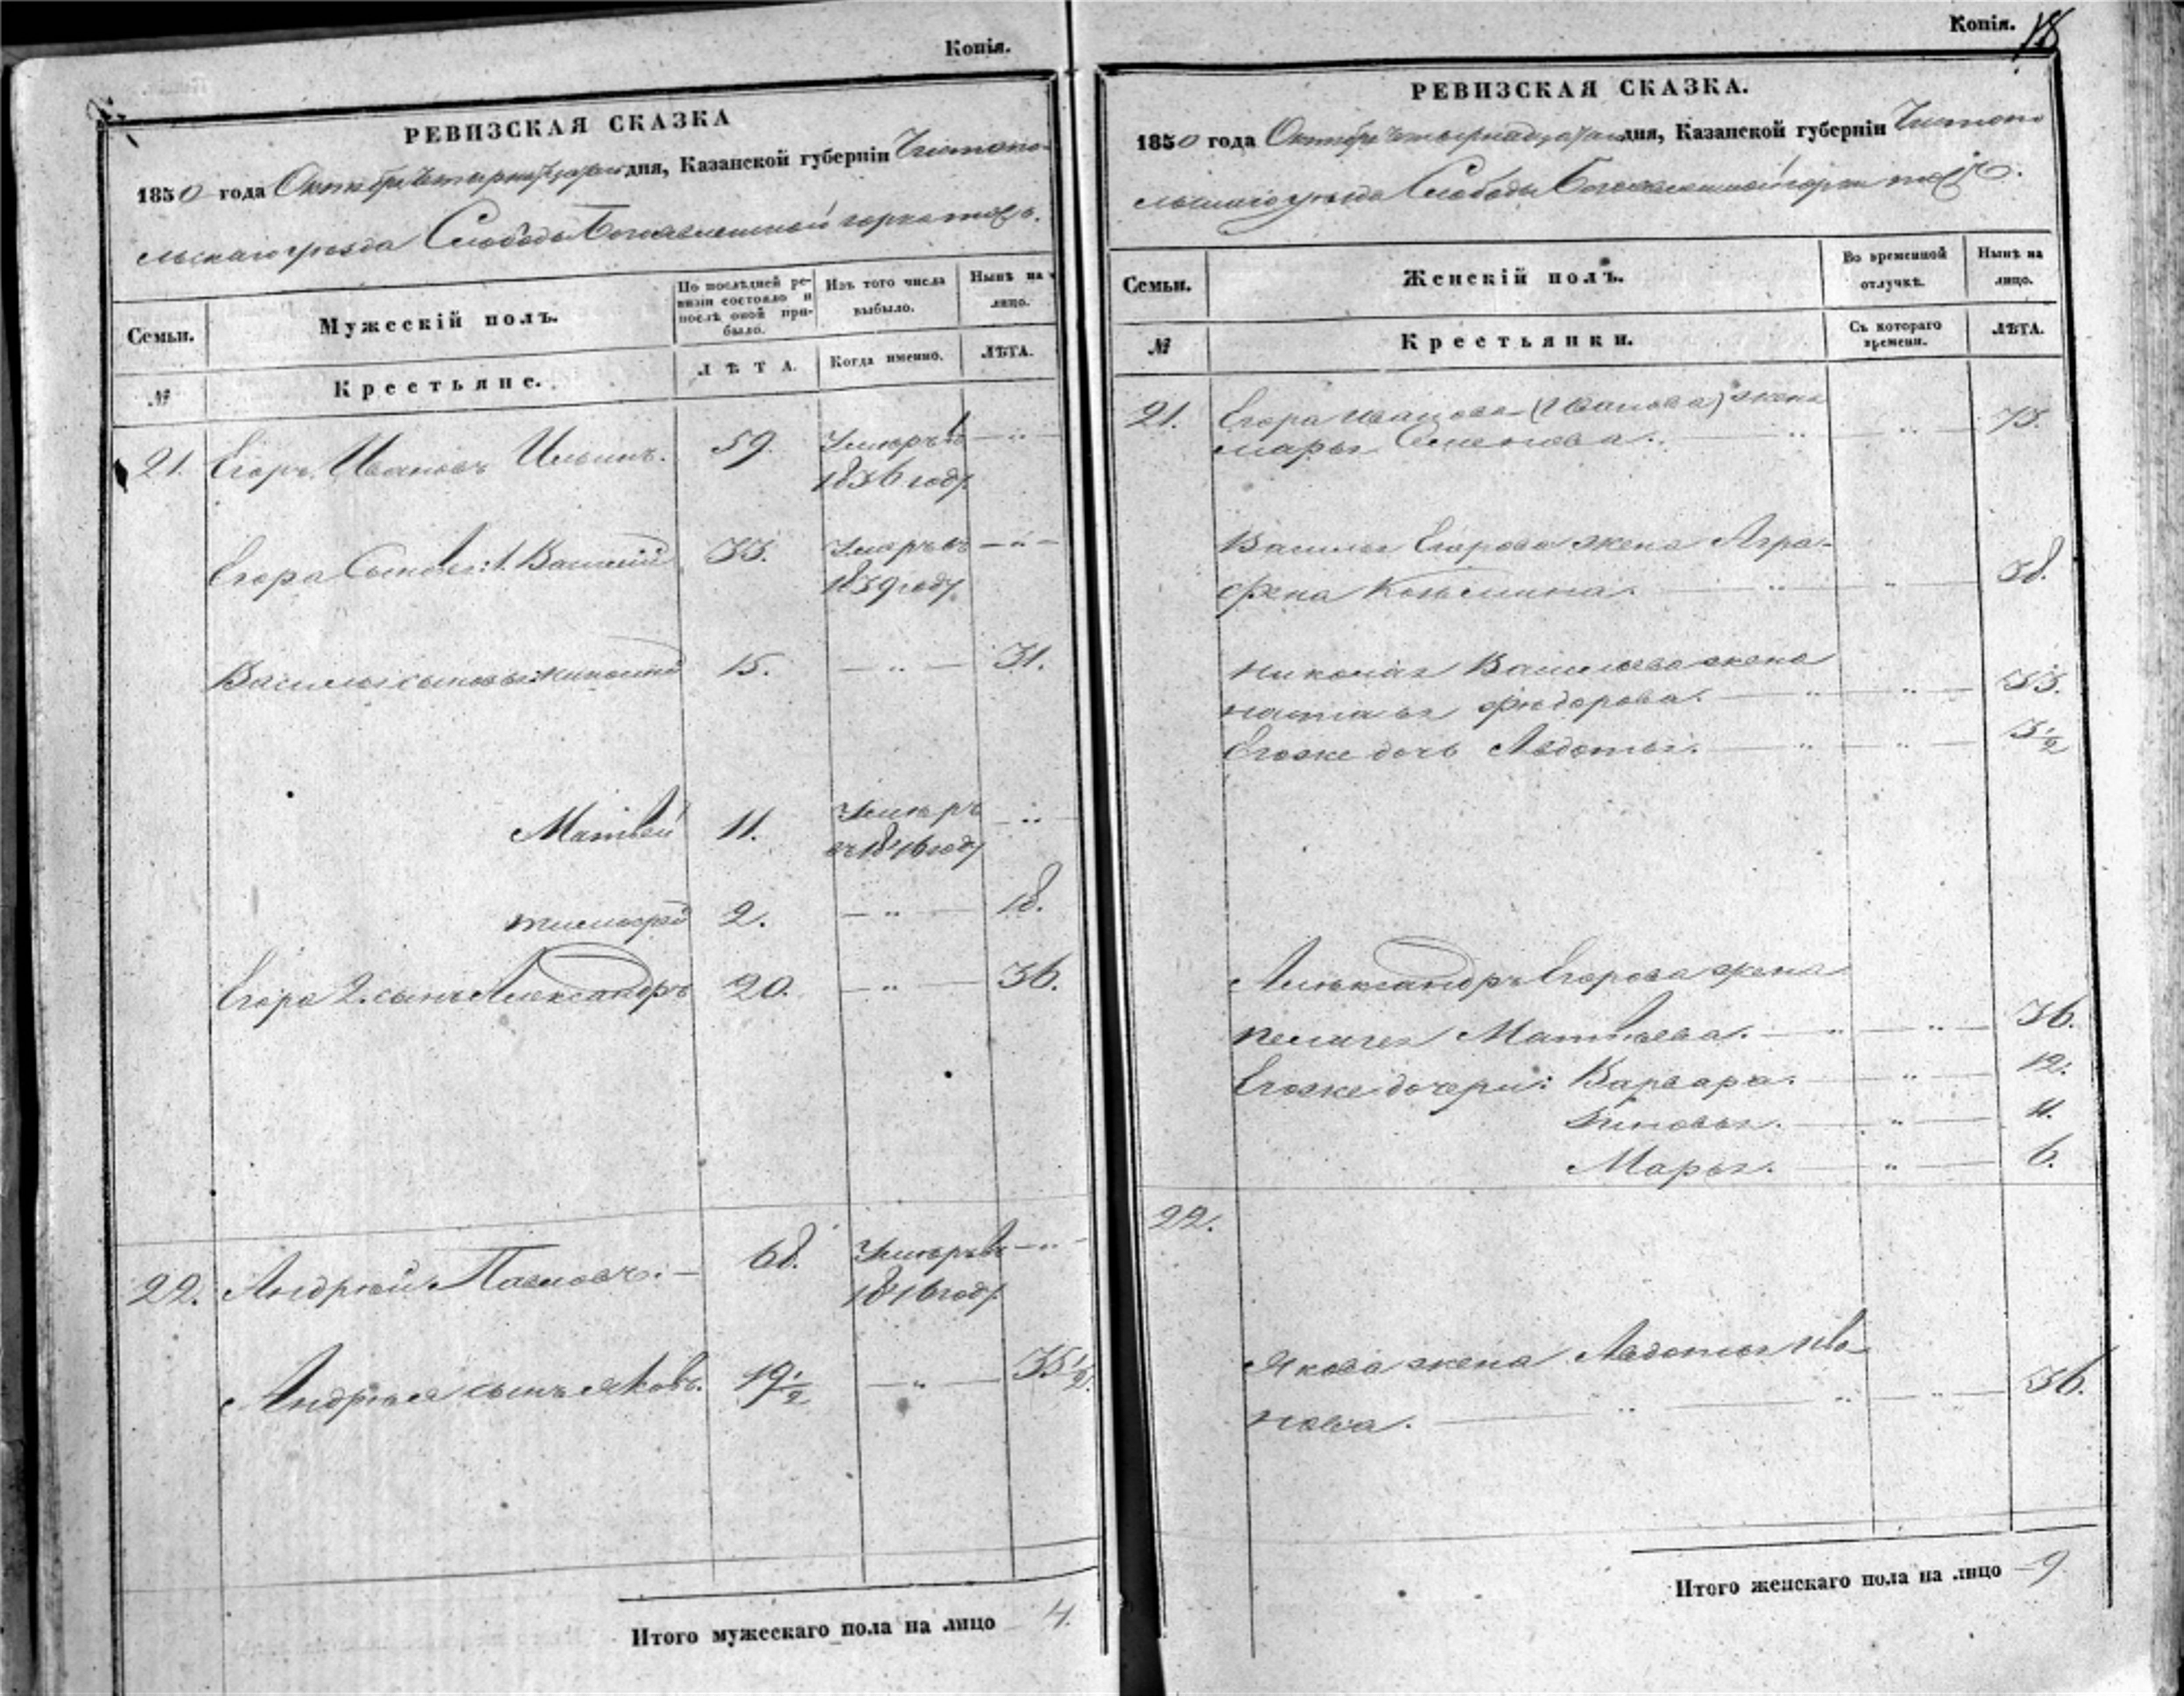 Копія.
РЕВИЗСКАЯ СКАЗКА
1850 года Октября четырнадцатаго дня, Казанской губерніи Чистопо-
льскаго уѣзда Слободы Богоявленской горка тожъ.
Семьи. Мужескій полъ. По послѣдней ревизіи состояло и послѣ оной прибыло. Изъ того числа выбыло. Нынѣ на лицо.
№ Крестьяне. ЛѢТА. Когда именно. ЛѢТА.
21. Егоръ Ивановъ Ильинъ. 59. Умеръ въ — „ —
1836 году
Егора Сыновья: 1. Василій 33. Умеръ въ — „ —
1839 году
Василья сыновья: Николай 15. — „ — 31.
Матвей 11. Умеръ — „
въ 1846 году
Тимофей 2. — „ — 18.
Егора 2. сынъ Александръ 20. — „ — 36.
22. Андрей Павловъ. — 68. Умеръ въ — „ —
1846 году
Андрея сынъ Яковъ. 19 1/2 — „ — 35 1/2.
Итого мужескаго пола на лицо 4.
Копія. 18
РЕВИЗСКАЯ СКАЗКА.
1850 года Октября четырнадцатаго дня, Казанской губерніи Чистопо
льскаго уѣзда Слободы Богоявленской горка тожъ.
Семьи. Женскій полъ. Во временной отлучкѣ. Нынѣ на лицо.
№ Крестьянки. Съ котораго времени. ЛѢТА.
21. Егора Иванова (Иванова) жена
Марья Семенова. — „ — „ — 75.
Василья Егорова жена Агра-
фена Козьмина. — „ — „ — 58.
Николая Васильева жена
Наталья Федорова. — „ — „ — 33.
Егоже дочь Авдотья. — „ — „ — 3 1/2
Александръ Егорова жена
Пелагея Матвеева. — „ — „ — 36.
Егоже дочери: Варвара. — „ — 12.
Зиновья. — „ — 11.
Марья. — „ — 6.
22.
Якова жена Авдотья Ива-
нова. — „ — „ — 36.
Итого женскаго пола на лицо — 9